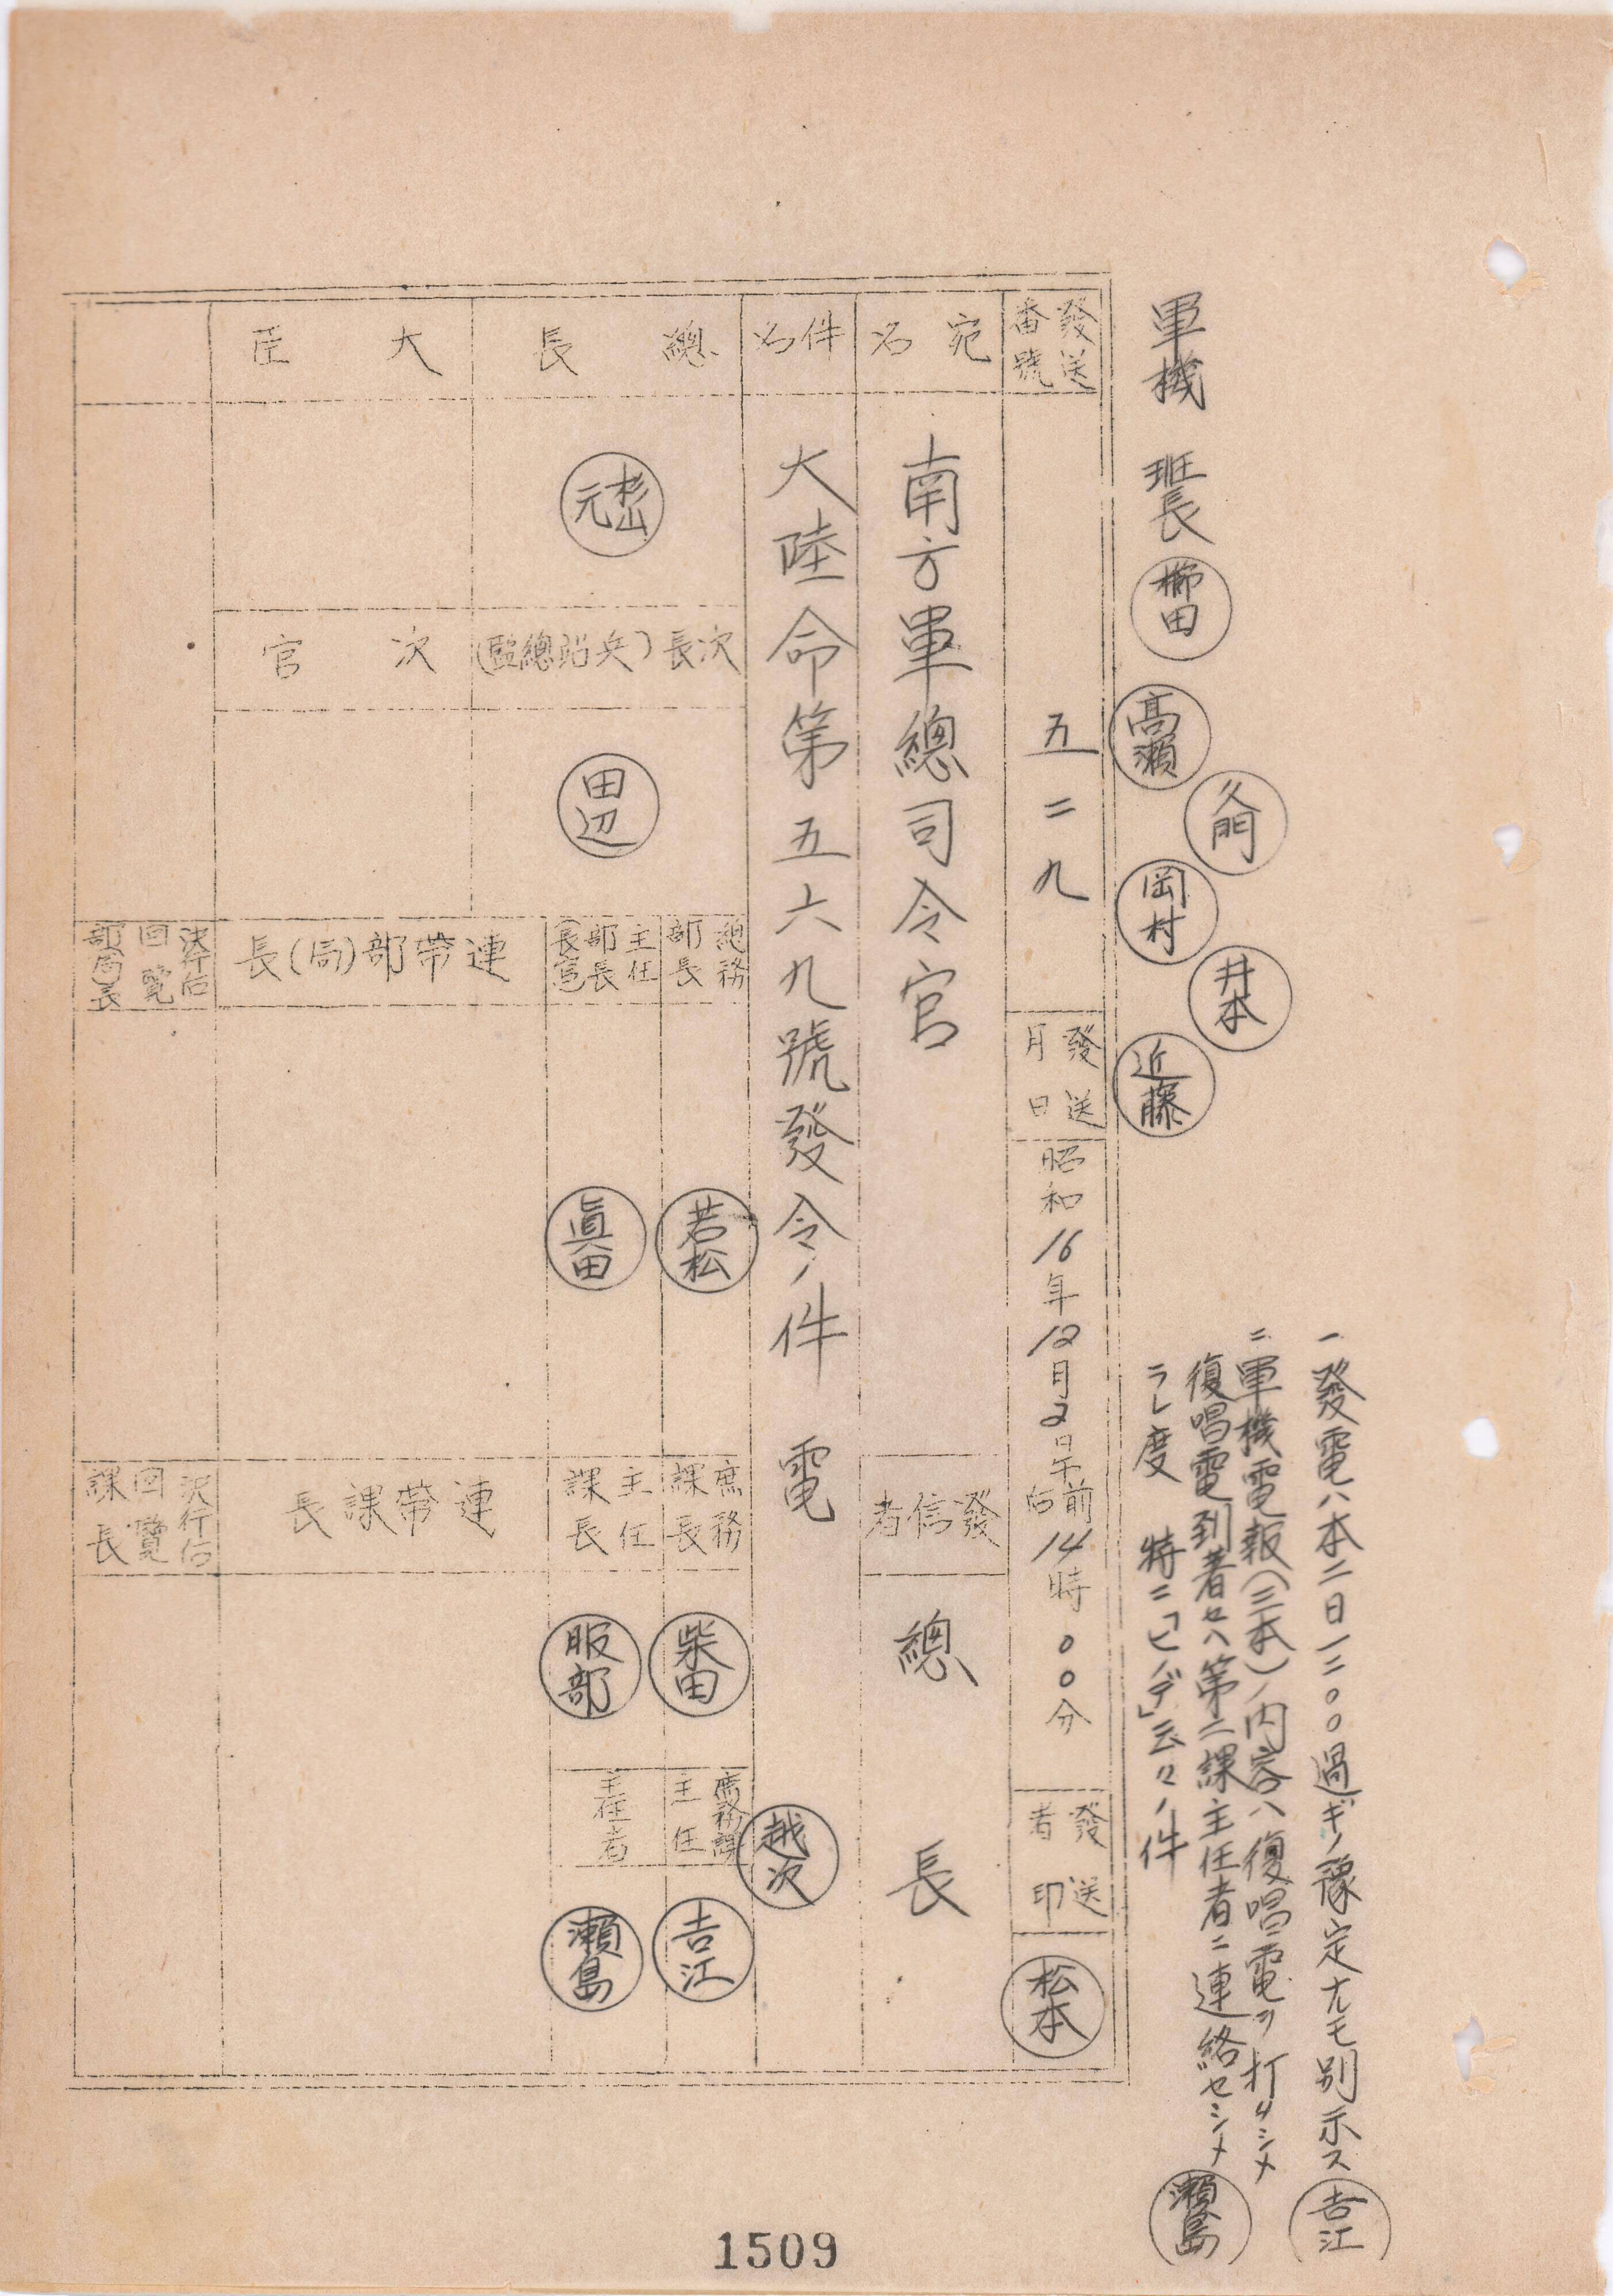 一 發電ハ本二日一二〇〇過ギノ豫定ナルモ別示ス
吉江
二 軍機電報(三本)ノ内容ハ復唱電ヲ打タシメ
復唱電到著セハ第二課主任者ニ連絡セシメ
ラレ度 特ニ「ヒノデ」云々ノ件
瀬島
軍機 班長
櫛田
高瀬
久門
岡村
井本
近藤
發送番號
五二九
發送月日
昭和16年12月2日午前后14時00分
發送者印
松本
宛名
南方軍總司令官
發信者
總長
件名
大陸命第五六九號發令ノ件 電
越次
總長
杉山元
次長(兵站總監)
田辺
總務部長
若松
庶務課長
柴田
庶務課主任
吉江
主任部長(長官)
眞田
主任課長
服部
主任者
瀬島
大臣
次官
連帶部(局)長
連帶課長
決行后回覽部局長
決行后回覽課長
1509